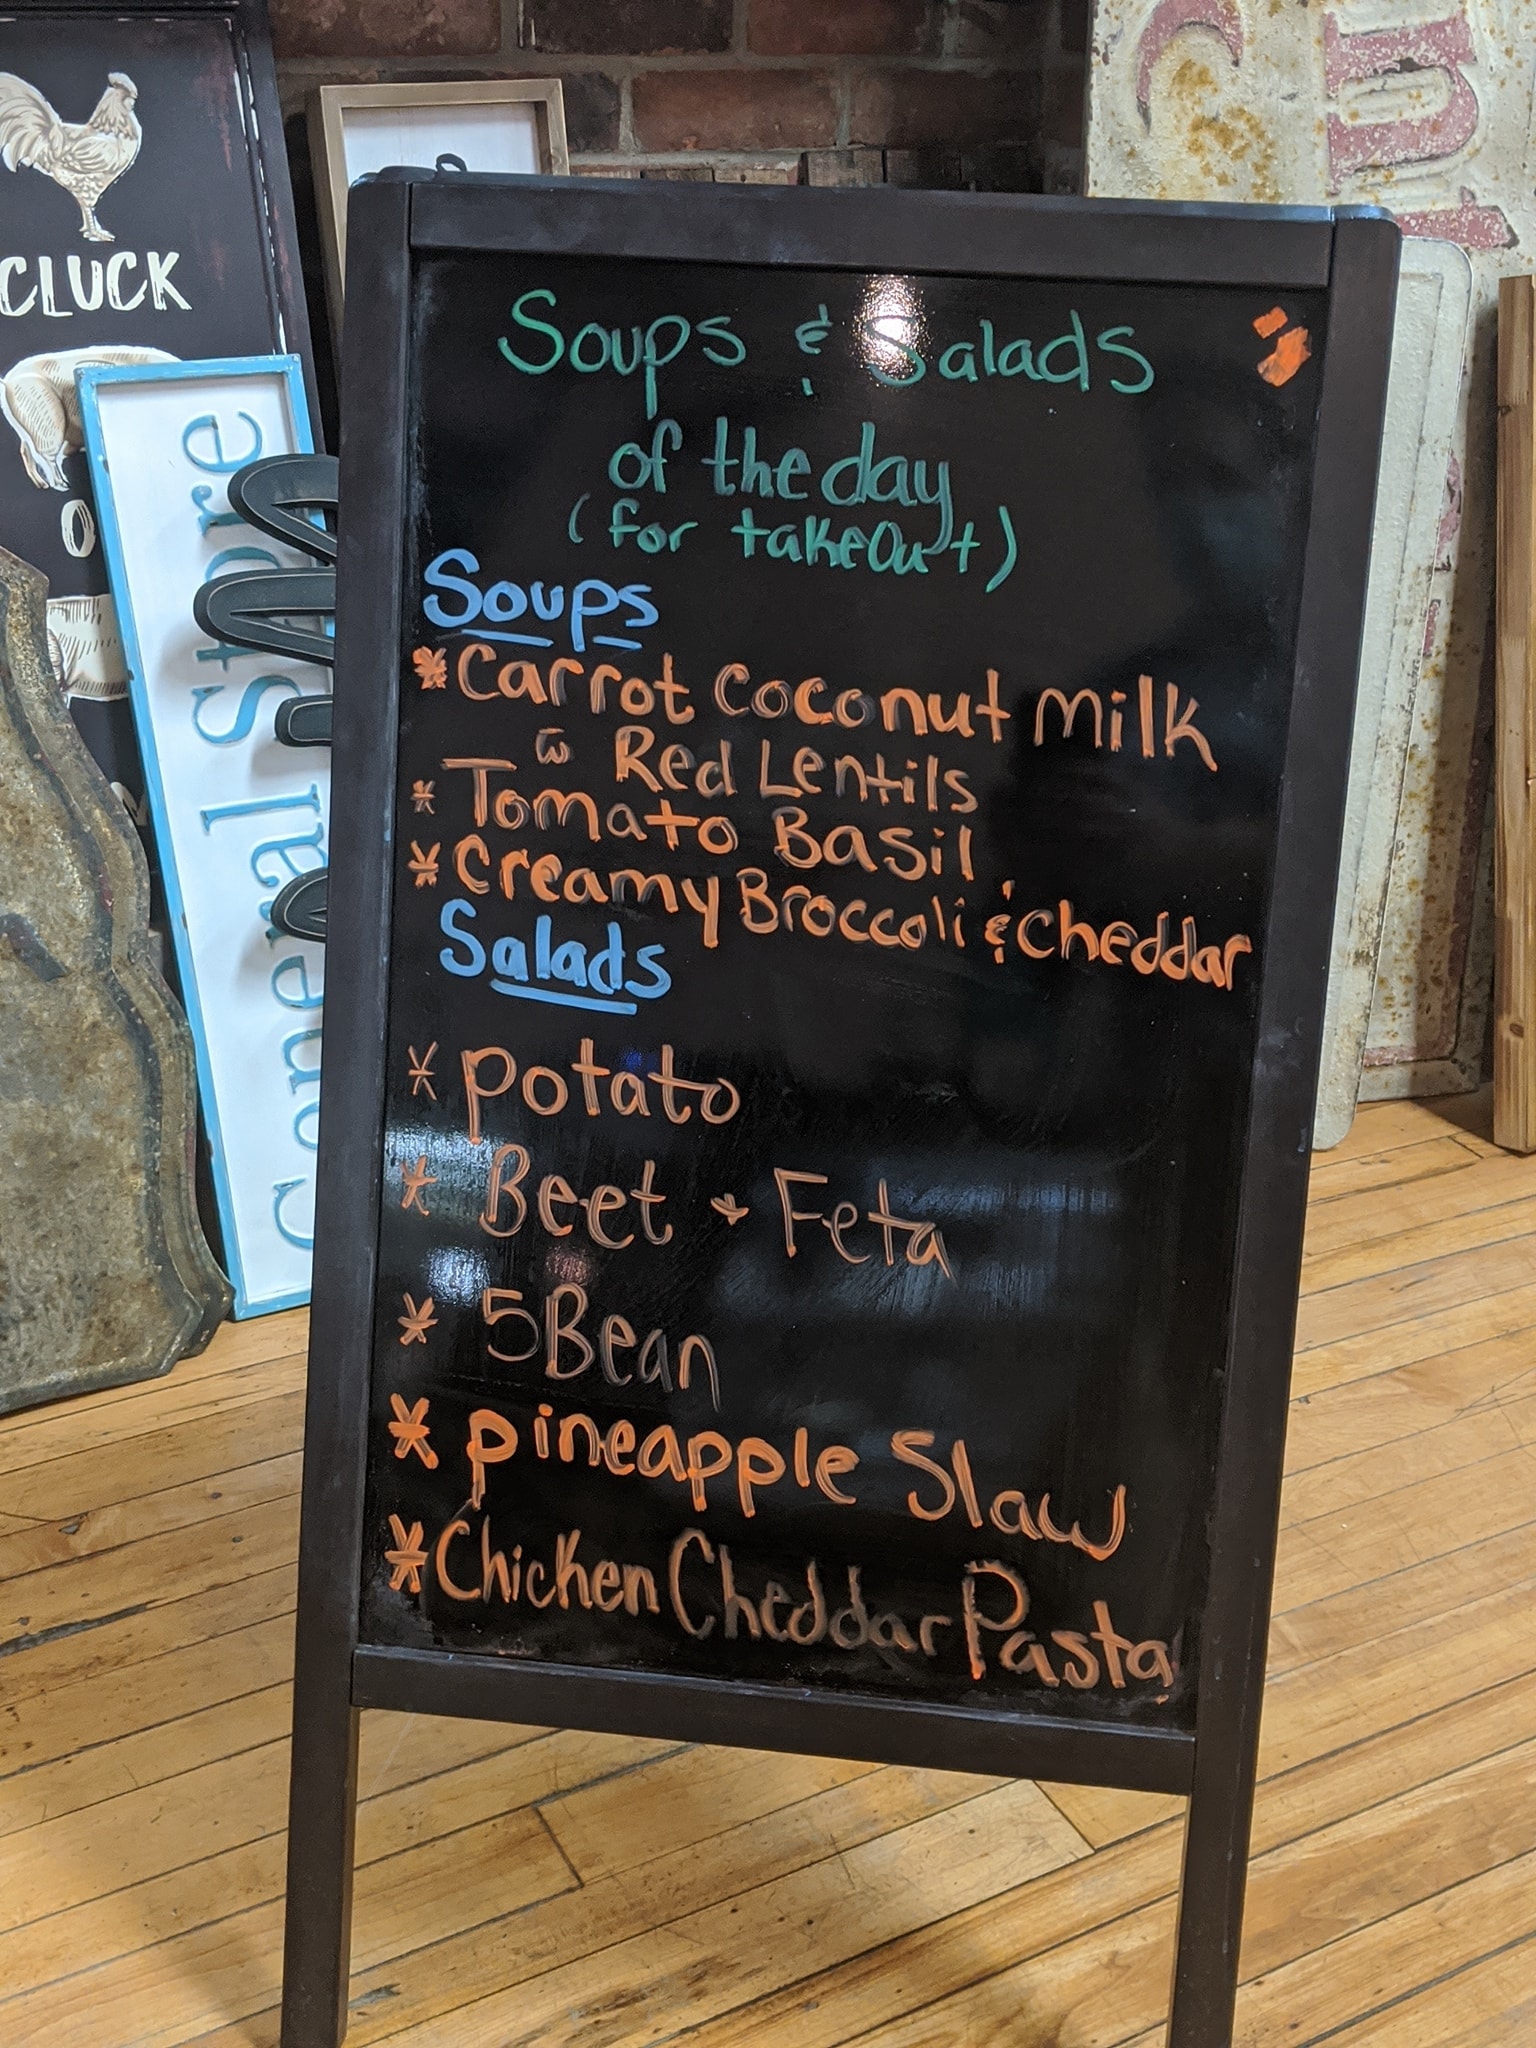 CLUCK
General Store
Soups & Salads
of the day
(for takeOut)
Soups
* Carrot Coconut Milk
w̄ Red Lentils
* Tomato Basil
* Creamy Broccoli & Cheddar
Salads
* potato
* Beet + Feta
* 5 Bean
* pineapple Slaw
* Chicken Cheddar Pasta